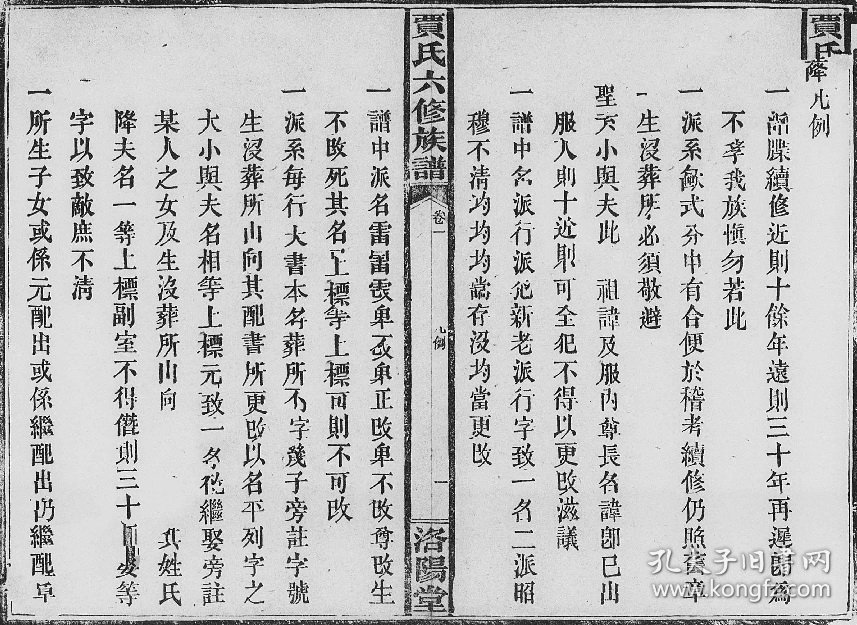 賈氏
凡例
一 譜牒續修近則十餘年遠則三十年再遲
不孝我族愼勿若此
一派系歐式分中有合便於稽考續修仍照舊章
生沒葬所必須敬避
聖 小與夫此 祖諱及服內尊長名諱卽已出
服人則十近則可全犯不得以更改滋議
一譜中名派行派 新老派行字致一名二派昭
穆不清均均均當存沒均當更改
賈氏六修族譜
卷一
凡例
一
洛陽堂
一譜中派名雷 卑 卑正改卑不改尊改生
不改死其名上標等上標可則不可改
一派系每行大書本名葬所 字幾子旁註字號
生沒葬所山向其配書所更改以名平列字之
大小與夫名相等上標元致一名 繼娶旁註
某人之女及生沒葬所山向 其姓氏
降夫名一等上標副室不得僭則三十 等
字以致敵庶不清
一所生子女或係元配出或係繼配出仍繼配
孔夫子旧书网
www.kongfz.com